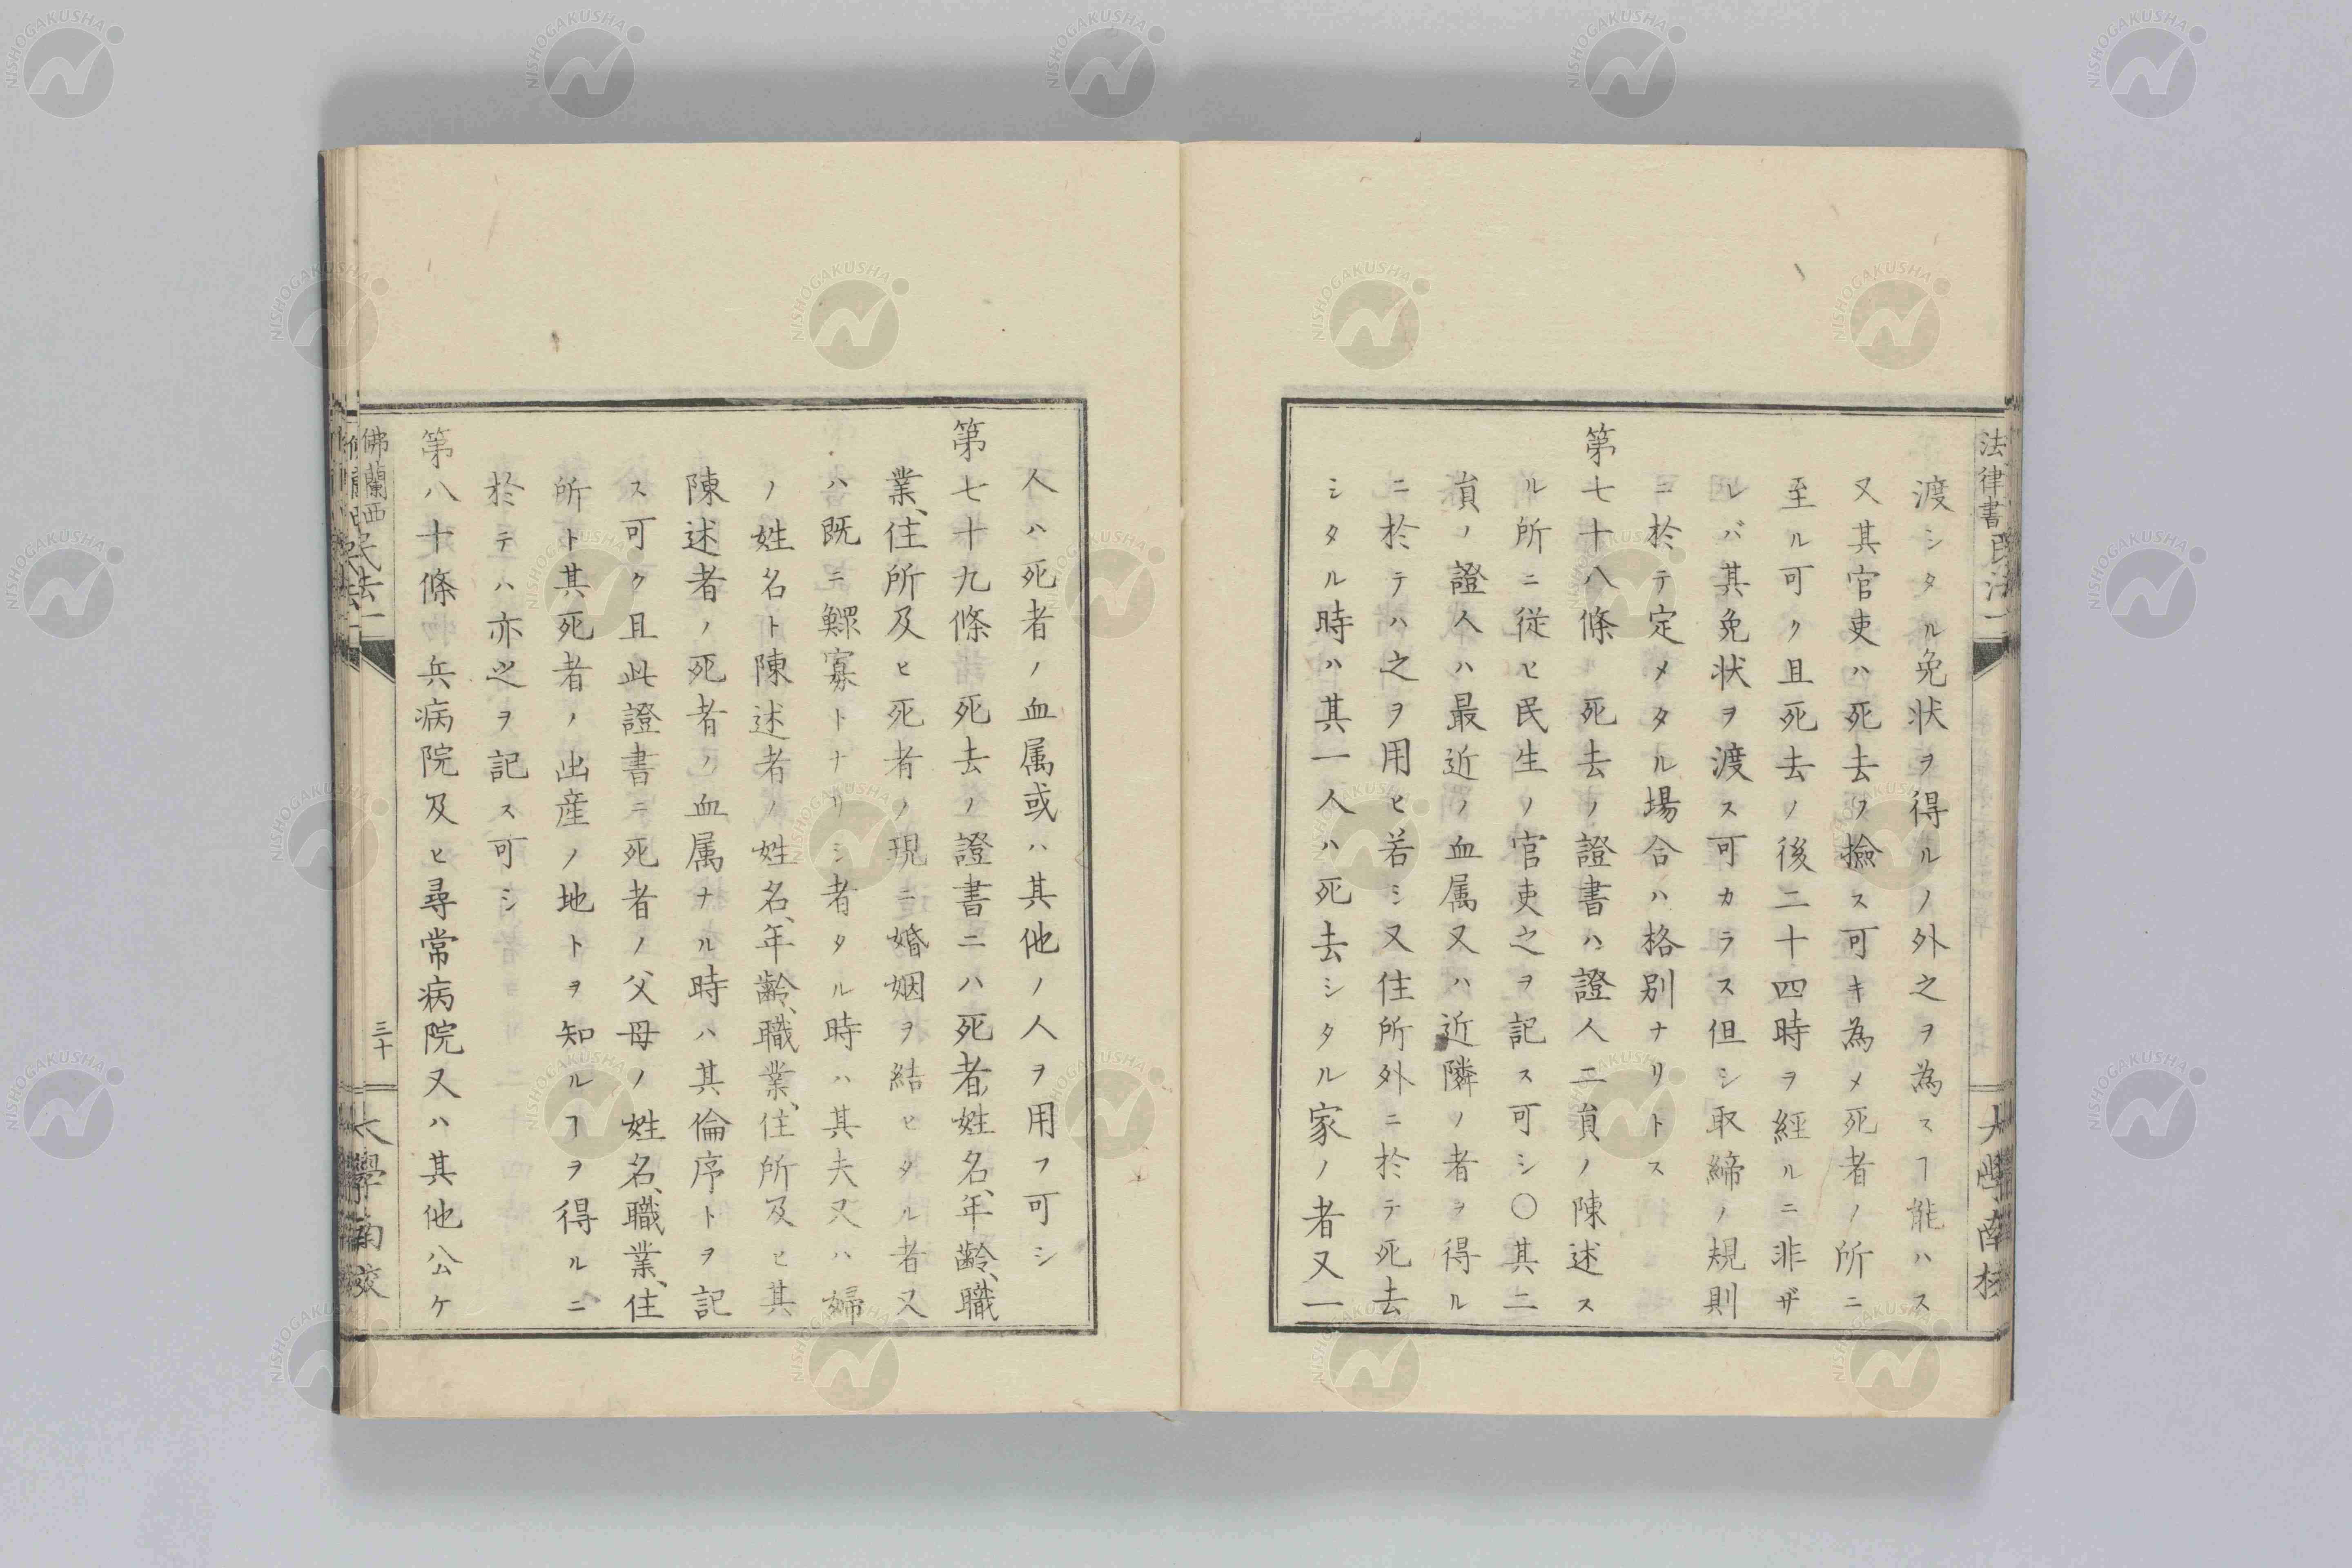 法律書民法一
大學南校
渡シタル免状ヲ得ルノ外之ヲ為スヿ能ハス
又其官吏ハ死去ヲ撿ス可キ為メ死者ノ所ニ
至ル可ク且死去ノ後二十四時ヲ経ルニ非ザ
レバ其免状ヲ渡ス可カラス但シ取締ノ規則
ニ於テ定メタル場合ハ格別ナリトス
第七十八條 死去ノ證書ハ證人二負ノ陳述ス
ル所ニ従ヒ民生ノ官吏之ヲ記ス可シ〇其二
負ノ證人ハ最近ノ血属又ハ近隣ノ者ヲ得ル
ニ於テハ之ヲ用ヒ若シ又住所外ニ於テ死去
シタル時ハ其一人ハ死去シタル家ノ者又一
人ハ死者ノ血属或ハ其他ノ人ヲ用フ可シ
第七十九條 死去ノ證書ニハ死者ノ姓名、年齢、職
業、住所及ヒ死者ノ現ニ婚姻ヲ結ヒタル者又
ハ既ニ鰥寡トナリシ者タル時ハ其夫又ハ婦
ノ姓名ト陳述者ノ姓名、年齢、職業、住所及ヒ其
陳述者ノ死者ノ血属ナル時ハ其倫序トヲ記
ス可ク且此證書ニ死者ノ父母ノ姓名、職業、住
所ト其死者ノ出産ノ地トヲ知ルヿヲ得ルニ
於テハ亦之ヲ記ス可シ
第八十條 兵病院及ヒ尋常病院又ハ其他公ケ
佛蘭西民法一
三十
大學南校
NISHOGAKUSHA